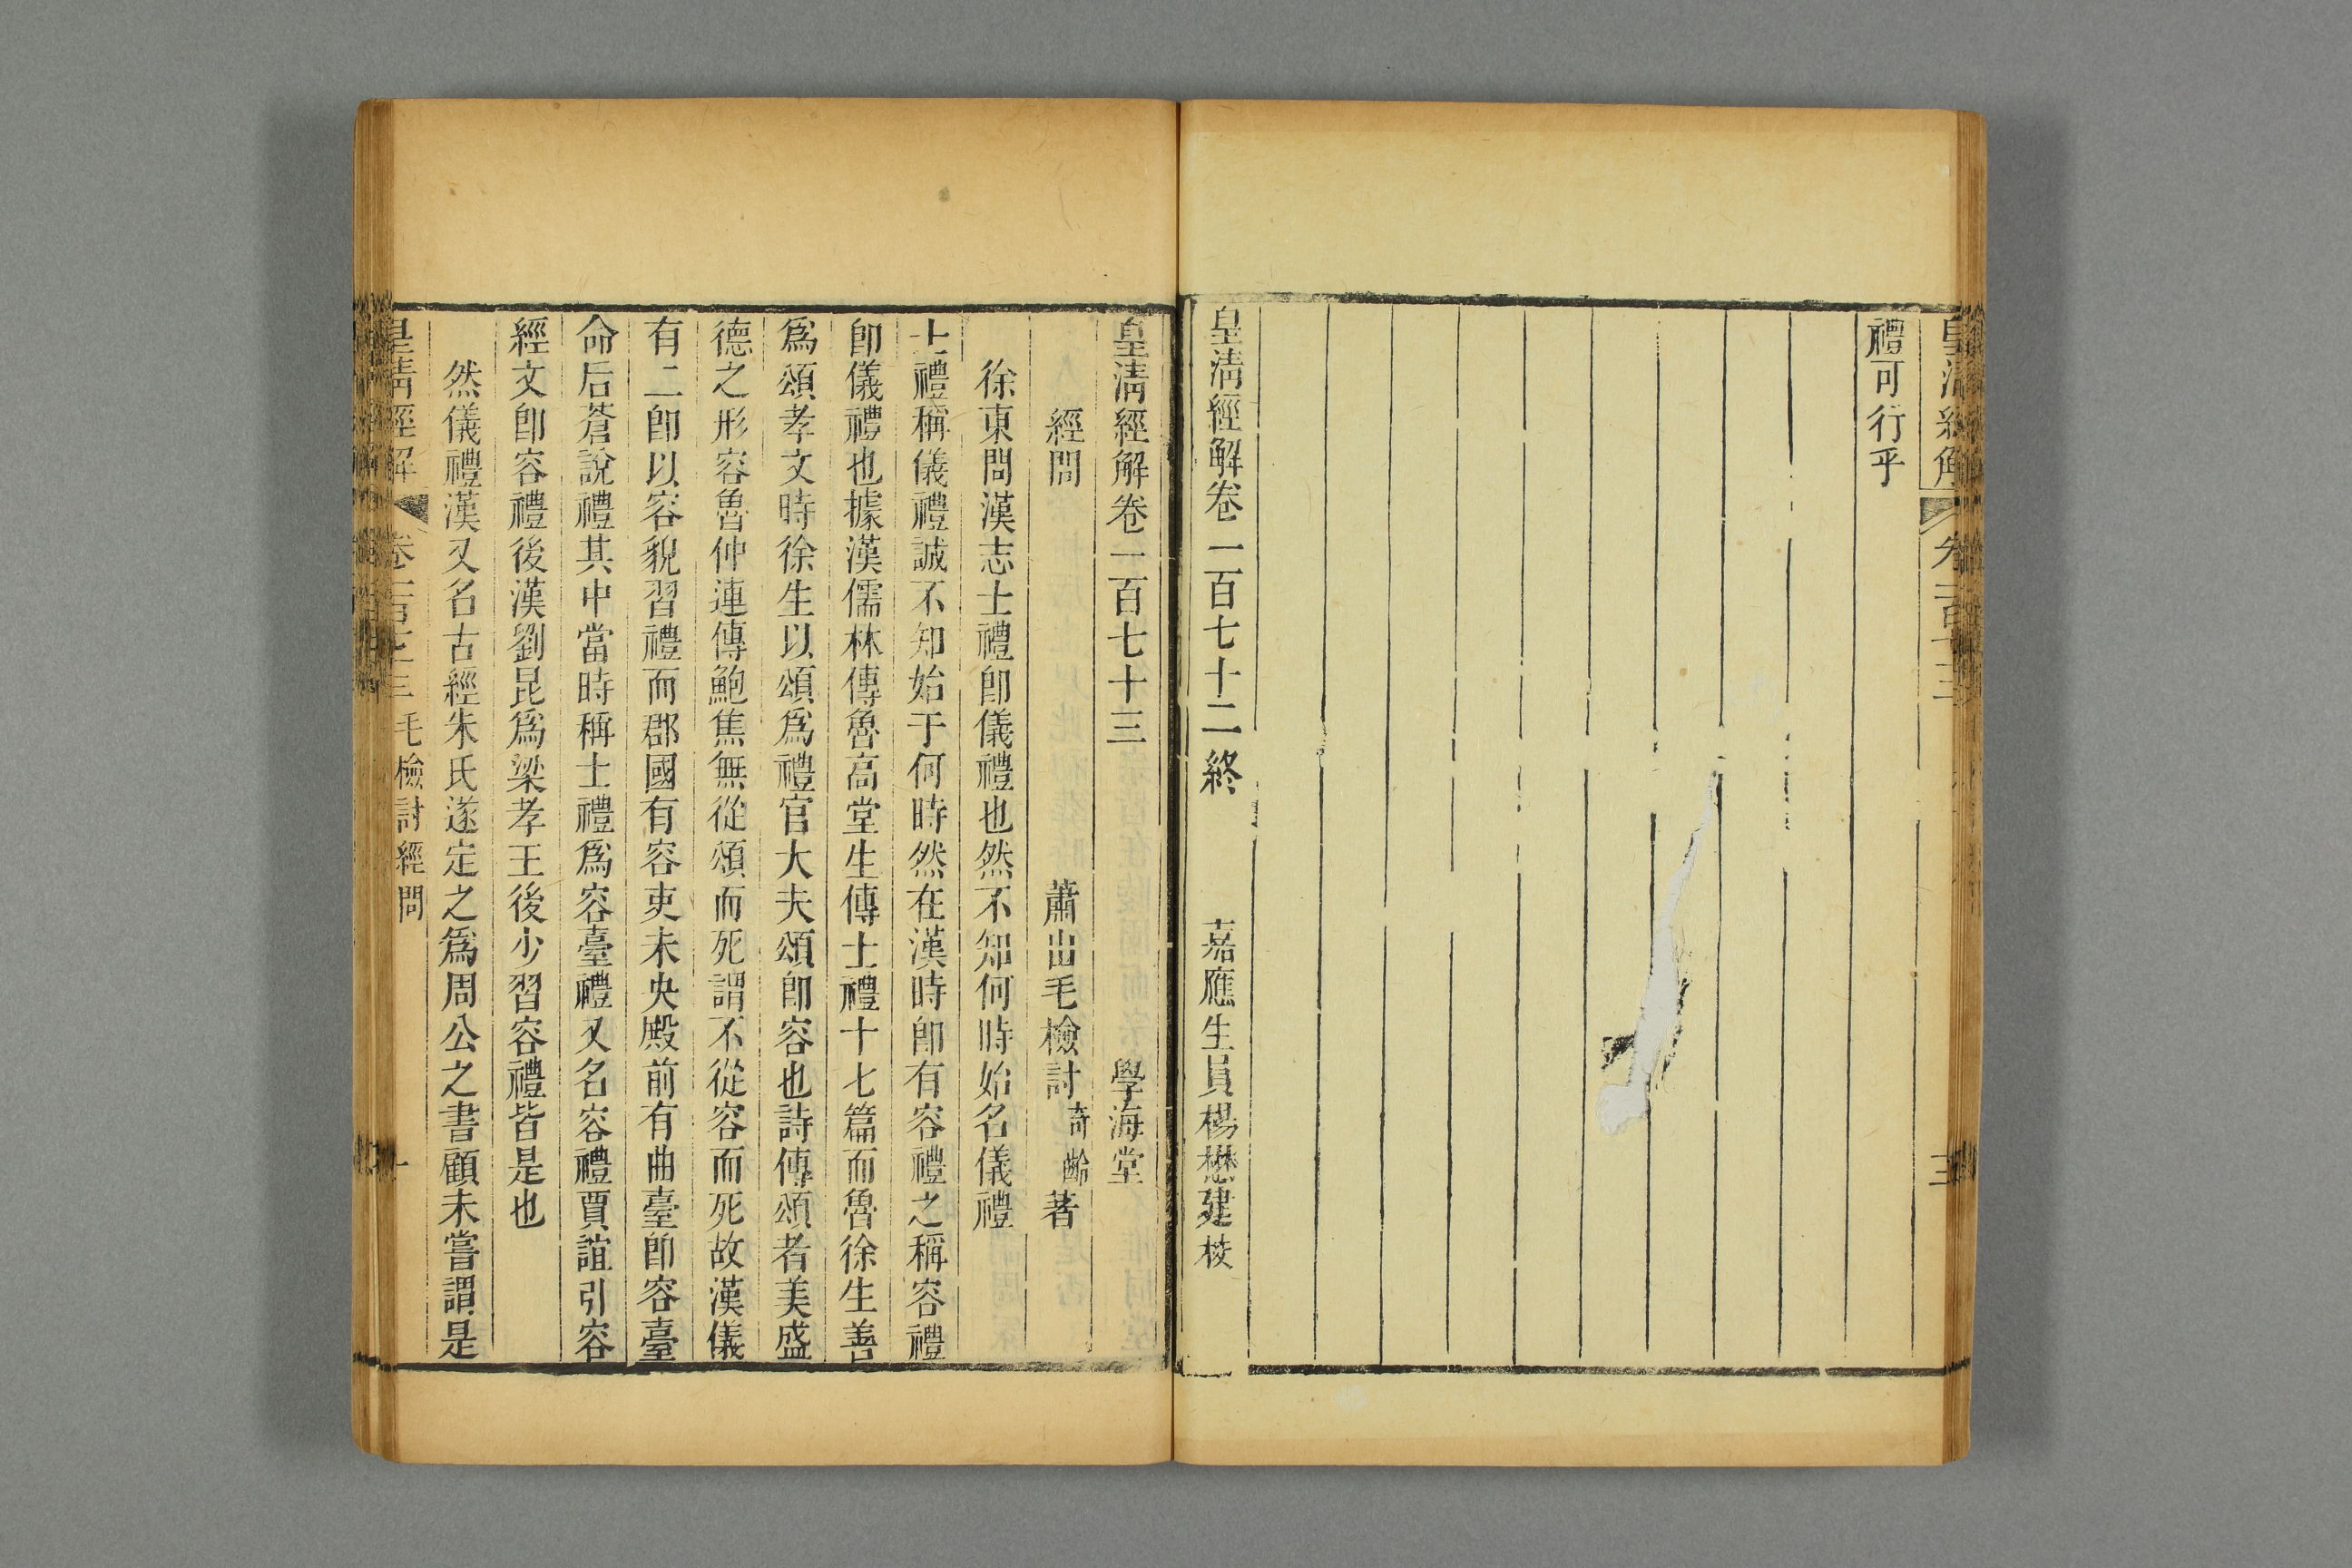 禮可行乎
皇清經解卷一百七十二終 嘉應生員楊懋建校
皇清經解卷一百七十三 學海堂
經問 蕭山毛檢討奇齡著
徐東問漢志士禮卽儀禮也然不知何時始名儀禮
士禮稱儀禮誠不知始于何時然在漢時卽有容禮之稱容禮
卽儀禮也據漢儒林傳魯高堂生傳士禮十七篇而魯徐生善
爲頌孝文時徐生以頌爲禮官大夫頌卽容也詩傳頌者美盛
德之形容魯仲連傳鮑焦無從頌而死謂不從容而死故漢儀
有二卽以容貌習禮而郡國有容吏未央殿前有曲臺卽容臺
命后蒼說禮其中當時稱士禮爲容臺禮又名容禮賈誼引容
經文卽容禮後漢劉昆爲梁孝王後少習容禮皆是也
然儀禮漢又名古經朱氏遂定之爲周公之書顧未嘗謂是
皇清經解 卷一百七十三 毛檢討經問 一